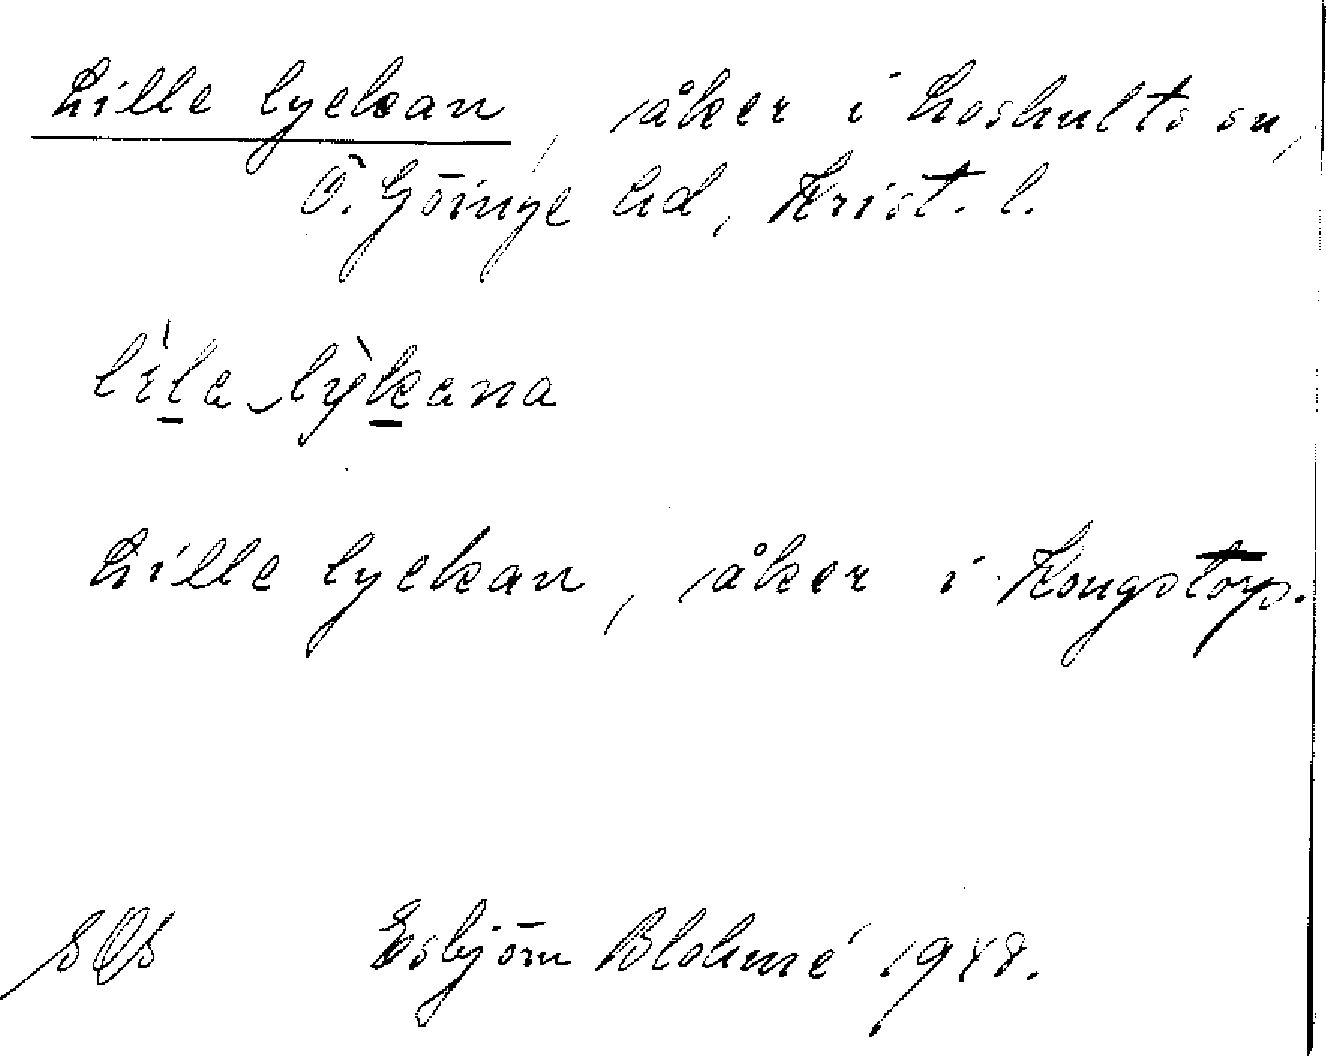 Lille lyckan, åker i Loshults sn,
Ö. Göinge hd, Krist. l.
lìla lỳkana
Lille lyckan, åker i Kongstorp.
Esbjörn Blohmé 1948.